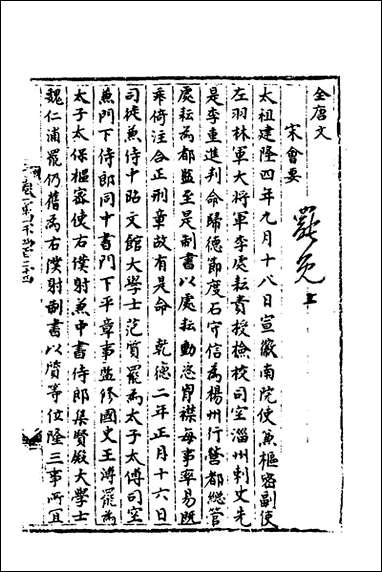 全唐文
宋會要
罷免上
太祖建隆四年九月十八日宣徽南院使兼樞密副使
左羽林軍大將軍李處耘責授檢校司空淄州刺史先
是李重進判命歸德節度石守信為楊州行營都總管
處耘為都監至是制書以處耘動恣胷襟每事率易既
乖倚注合正刑章故有是命 乾德二年正月十六日
司徒兼侍中昭文館大學士范質罷為太子太傅司空
兼門下侍郎同中書門下平章事監修國史王溥罷為
太子太保樞密使右僕射兼中書侍郎集賢殿大學士
魏仁浦罷仍舊為右僕射制書以質等位隆三事所宜